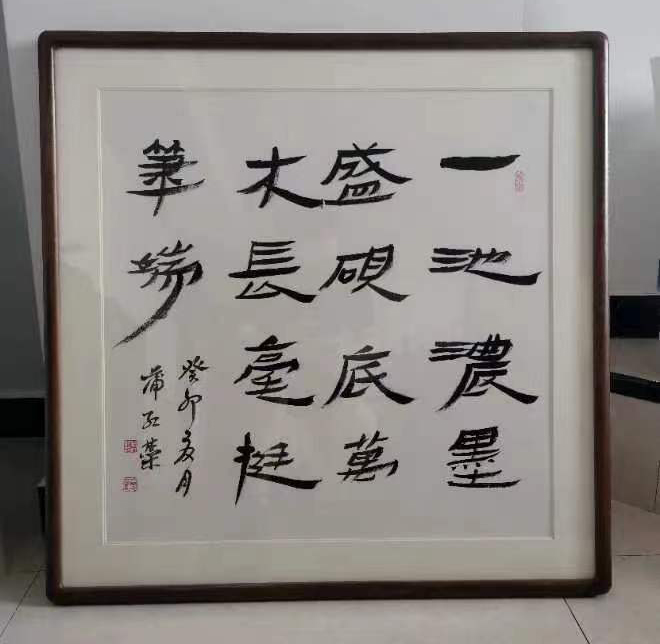 一池濃墨
盛硯底萬
木長毫挺
筆端
癸卯夏月
蒲紅榮